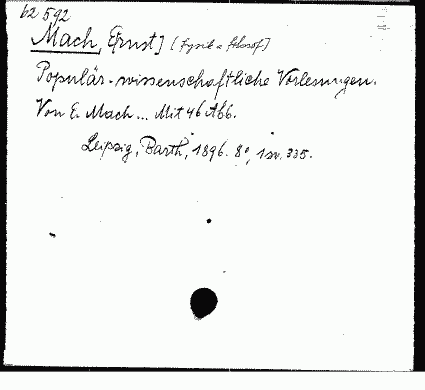 62 592
Mach, Ernst] (fysik a filosof]
Populär-wissenschaftliche Vorlesungen.
Von E. Mach... Mit 46 Abb.
Leipzig, Barth, 1896. 8°, 1 sv. 335.